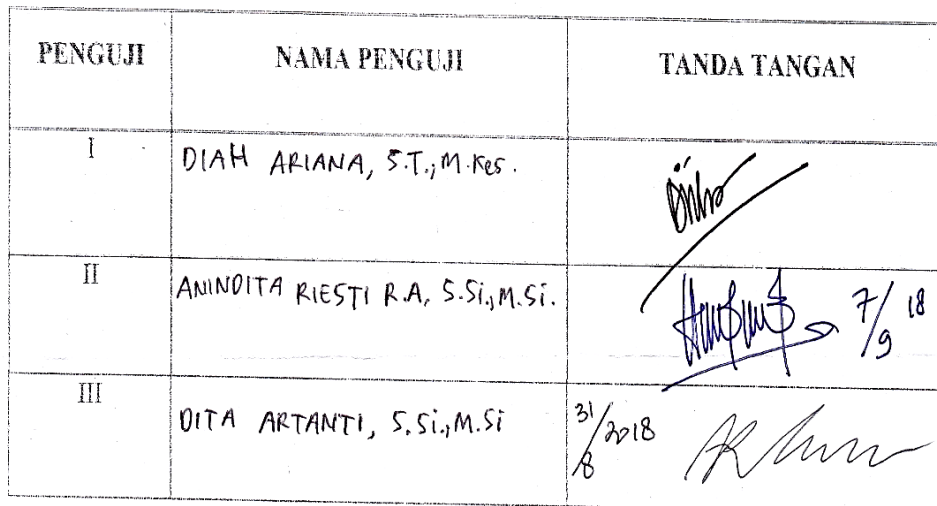 PENGUJI NAMA PENGUJI TANDA TANGAN
I DIAH ARIANA, S.T., M.Kes.
II ANINDITA RIESTI R.A, S.Si., M.Si. 7/9 18
III DITA ARTANTI, S.Si., M.Si 31/8 2018